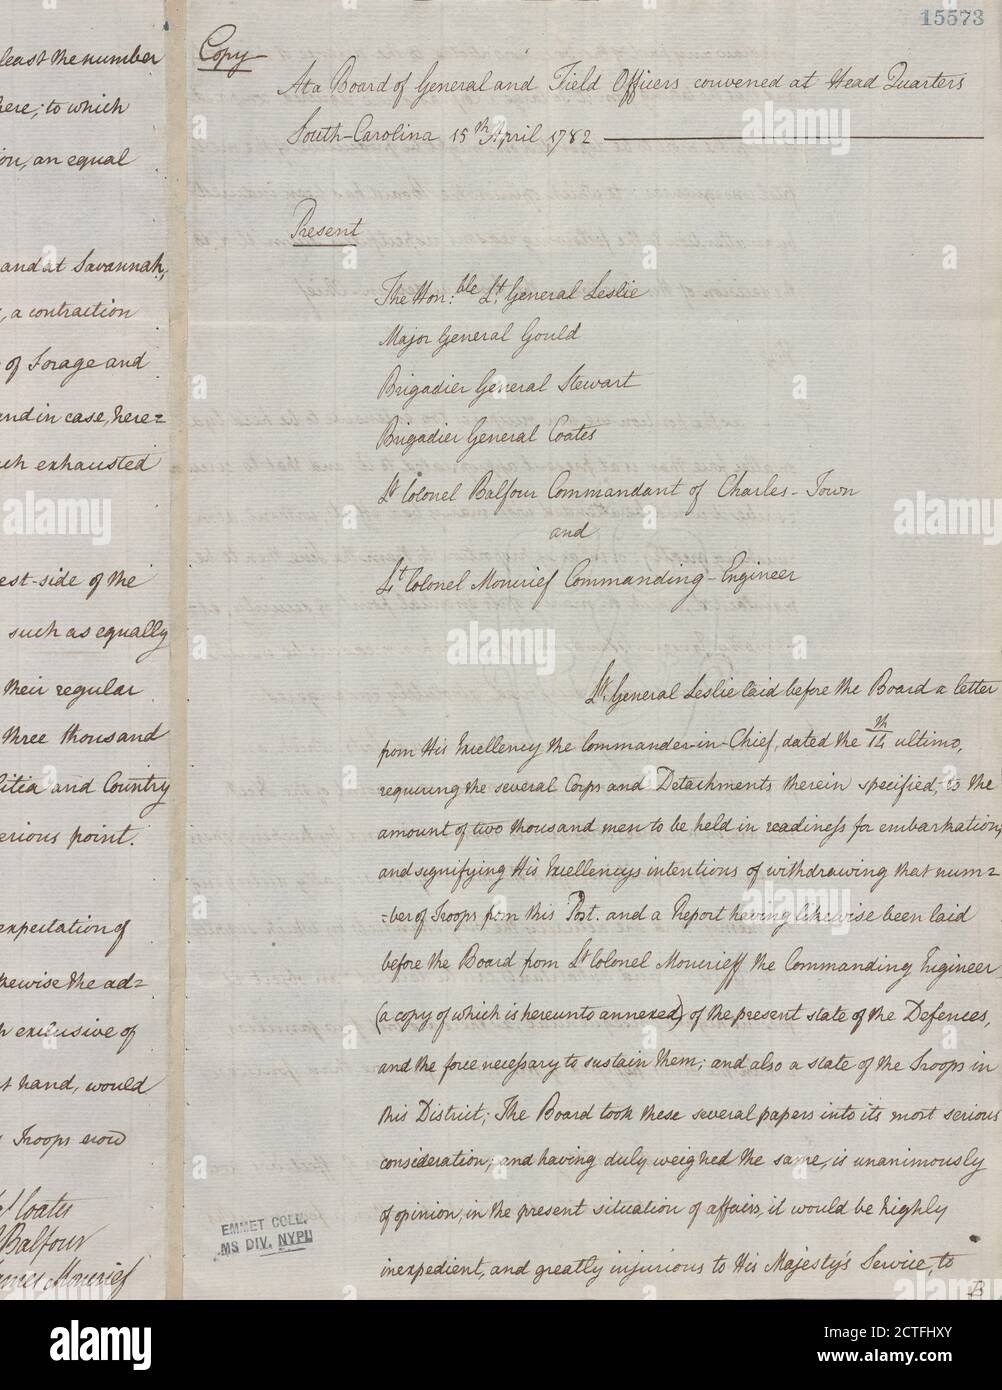 15573
Copy
At a Board of General and Field Officers convened at Head Quarters
South-Carolina 15th April 1782
Present
The Hon:ble Lt General Leslie
Major General Gould
Brigadier General Stewart
Brigadier General Coates
Lt Colonel Balfour Commandant of Charles-Town
and
Lt Colonel Moncrief Commanding-Engineer
Lt General Leslie laid before the Board a letter
from His Excellency the Commander-in-Chief, dated the 14th ultimo,
requiring the several Corps and Detachments therein specified, to the
amount of two thousand men to be held in readiness for embarkation,
and signifying His Excellencys intentions of withdrawing that num=
=ber of Troops from this Post. and a Report having likewise been laid
before the Board from Lt Colonel Moncrieff the Commanding Engineer
(a copy of which is hereunto annexed) of the present state of the Defences,
and the force necessary to sustain them; and also a state of the Troops in
this District; The Board took these several papers into its most serious
consideration, and having duly weighed the same, is unanimously
of opinion, in the present situation of affairs, it would be highly
inexpedient, and greatly injurious to His Majesty's Service, to
least the number
here, to which
an equal
and at Savannah,
a contraction
of Forage and
and in case, here=
exhausted
est-side of the
such as equally
their regular
three thousand
litia and Country
erious point.
expectation of
kewise the ad=
exclusive of
hand, would
Troops now
Coates
Balfour
ames Moncrief
EMMET COLL.
MS DIV. NYPL
alamy
Image ID: 2CTFHXY
www.alamy.com